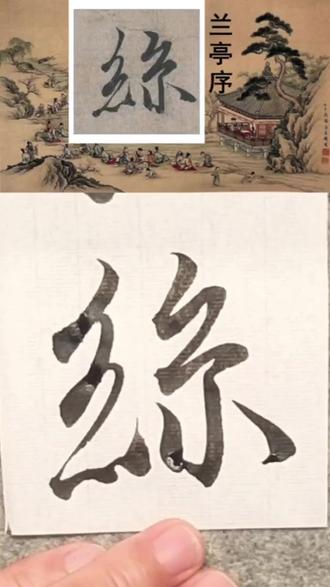 兰亭序
絲
絲